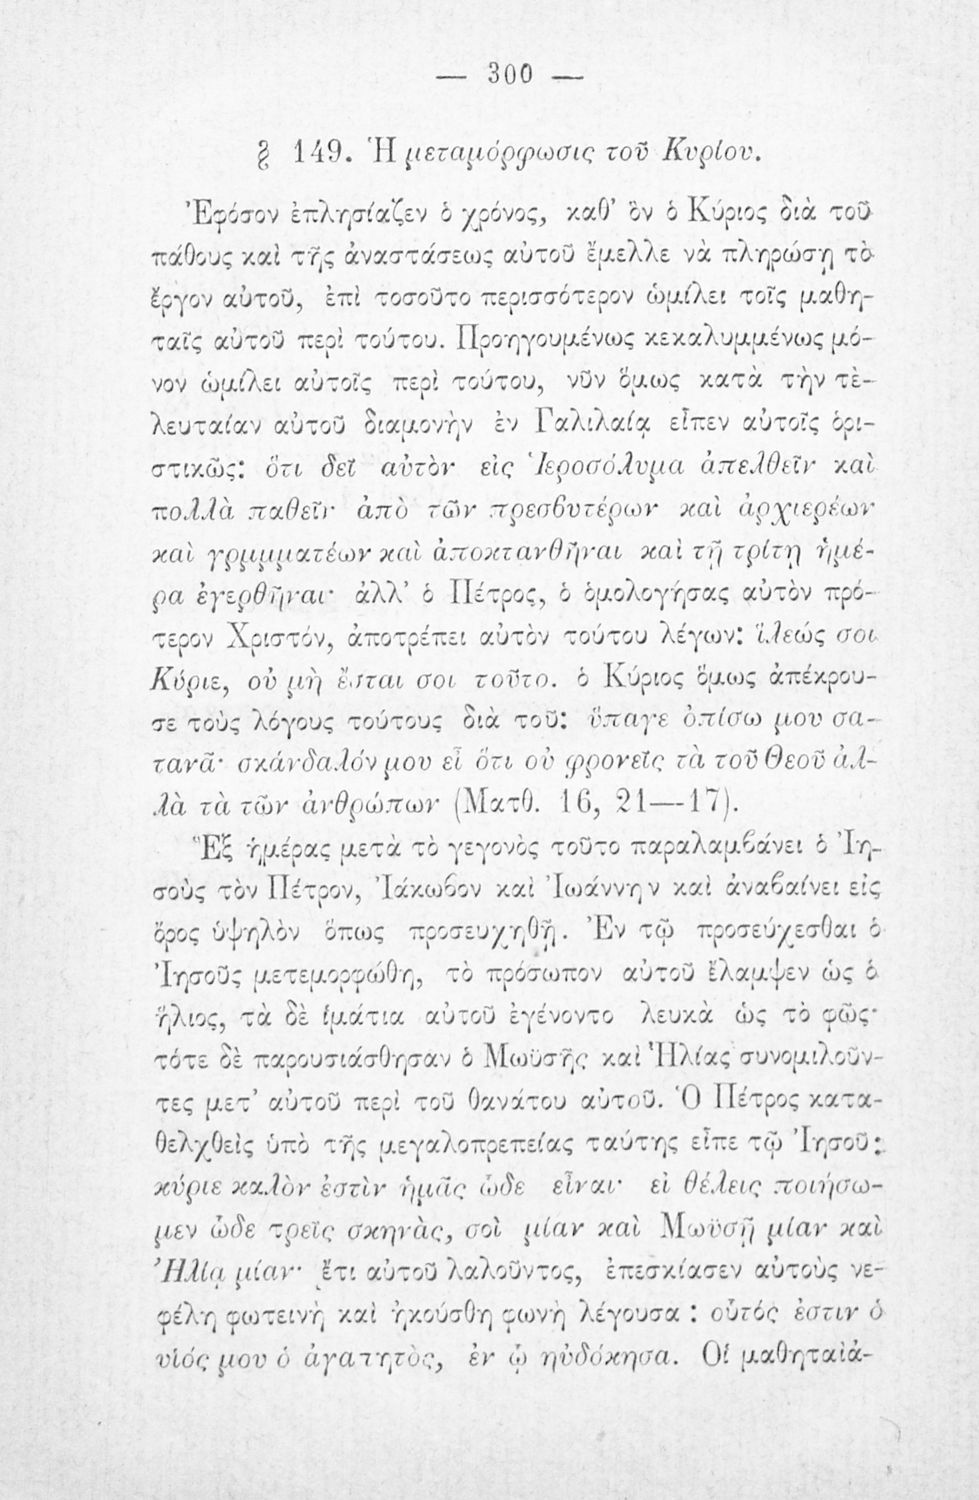 — 300 —
§ 149. Ἡ μεταμόρφωσις τοῦ Κυρίου.
Ἐφόσον ἐπλησίαζεν ὁ χρόνος, καθ’ ὃν ὁ Κύριος διὰ τοῦ
πάθους καὶ τῆς ἀναστάσεως αὐτοῦ ἔμελλε νὰ πληρώσῃ τὸ
ἔργον αὐτοῦ, ἐπὶ τοσοῦτο περισσότερον ὡμίλει τοῖς μαθη-
ταῖς αὐτοῦ περὶ τούτου. Προηγουμένως κεκαλυμμένως μό-
νον ὡμίλει αὐτοῖς περὶ τούτου, νῦν ὅμως κατὰ τὴν τε-
λευταίαν αὐτοῦ διαμονὴν ἐν Γαλιλαίᾳ εἶπεν αὐτοῖς ὁρι-
στικῶς: ὅτι δεῖ αὐτὸν εἰς Ἱεροσόλυμα ἀπελθεῖν καὶ
πολλὰ παθεῖν ἀπὸ τῶν πρεσβυτέρων καὶ ἀρχιερέων
καὶ γρμμματέων καὶ ἀποκτανθῆναι καὶ τῇ τρίτῃ ἡμέ-
ρα ἐγερθῆναι· ἀλλ’ ὁ Πέτρος, ὁ ὁμολογήσας αὐτὸν πρό-
τερον Χριστόν, ἀποτρέπει αὐτὸν τούτου λέγων: ἵλεώς σοι
Κύριε, οὐ μὴ ἔσται σοι τοῦτο. ὁ Κύριος ὅμως ἀπέκρου-
σε τοὺς λόγους τούτους διὰ τοῦ: ὕπαγε ὀπίσω μου σα-
τανᾶ· σκάνδαλόν μου εἶ ὅτι οὐ φρονεῖς τὰ τοῦ Θεοῦ ἀλ-
λὰ τὰ τῶν ἀνθρώπων (Ματθ. 16, 21—17).
Ἓξ ἡμέρας μετὰ τὸ γεγονὸς τοῦτο παραλαμβάνει ὁ Ἰη-
σοὺς τὸν Πέτρον, Ἰάκωβον καὶ Ἰωάννην καὶ ἀναβαίνει εἰς
ὄρος ὑψηλὸν ὅπως προσευχηθῇ. Ἐν τῷ προσεύχεσθαι ὁ
Ἰησοῦς μετεμορφώθη, τὸ πρόσωπον αὐτοῦ ἔλαμψεν ὡς ὁ
ἥλιος, τὰ δὲ ἱμάτια αὐτοῦ ἐγένοντο λευκὰ ὡς τὸ φῶς·
τότε δὲ παρουσιάσθησαν ὁ Μωϋσῆς καὶ Ἠλίας συνομιλοῦν-
τες μετ’ αὐτοῦ περὶ τοῦ θανάτου αὐτοῦ. Ὁ Πέτρος κατα-
θελχθεὶς ὑπὸ τῆς μεγαλοπρεπείας ταύτης εἶπε τῷ Ἰησοῦ:
κύριε καλὸν ἐστὶν ἡμᾶς ὧδε εἶναι· εἰ θέλεις ποιήσω-
μεν ὧδε τρεῖς σκηνὰς, σοὶ μίαν καὶ Μωϋσῇ μίαν καὶ
Ἠλίᾳ μίαν· ἔτι αὐτοῦ λαλοῦντος, ἐπεσκίασεν αὐτοὺς νε-
φέλη φωτεινὴ καὶ ἠκούσθη φωνὴ λέγουσα : οὗτός ἐστιν ὁ
υἱός μου ὁ ἀγαπητὸς, ἐν ᾧ ηὐδόκησα. Οἱ μαθηταὶ ἀ-